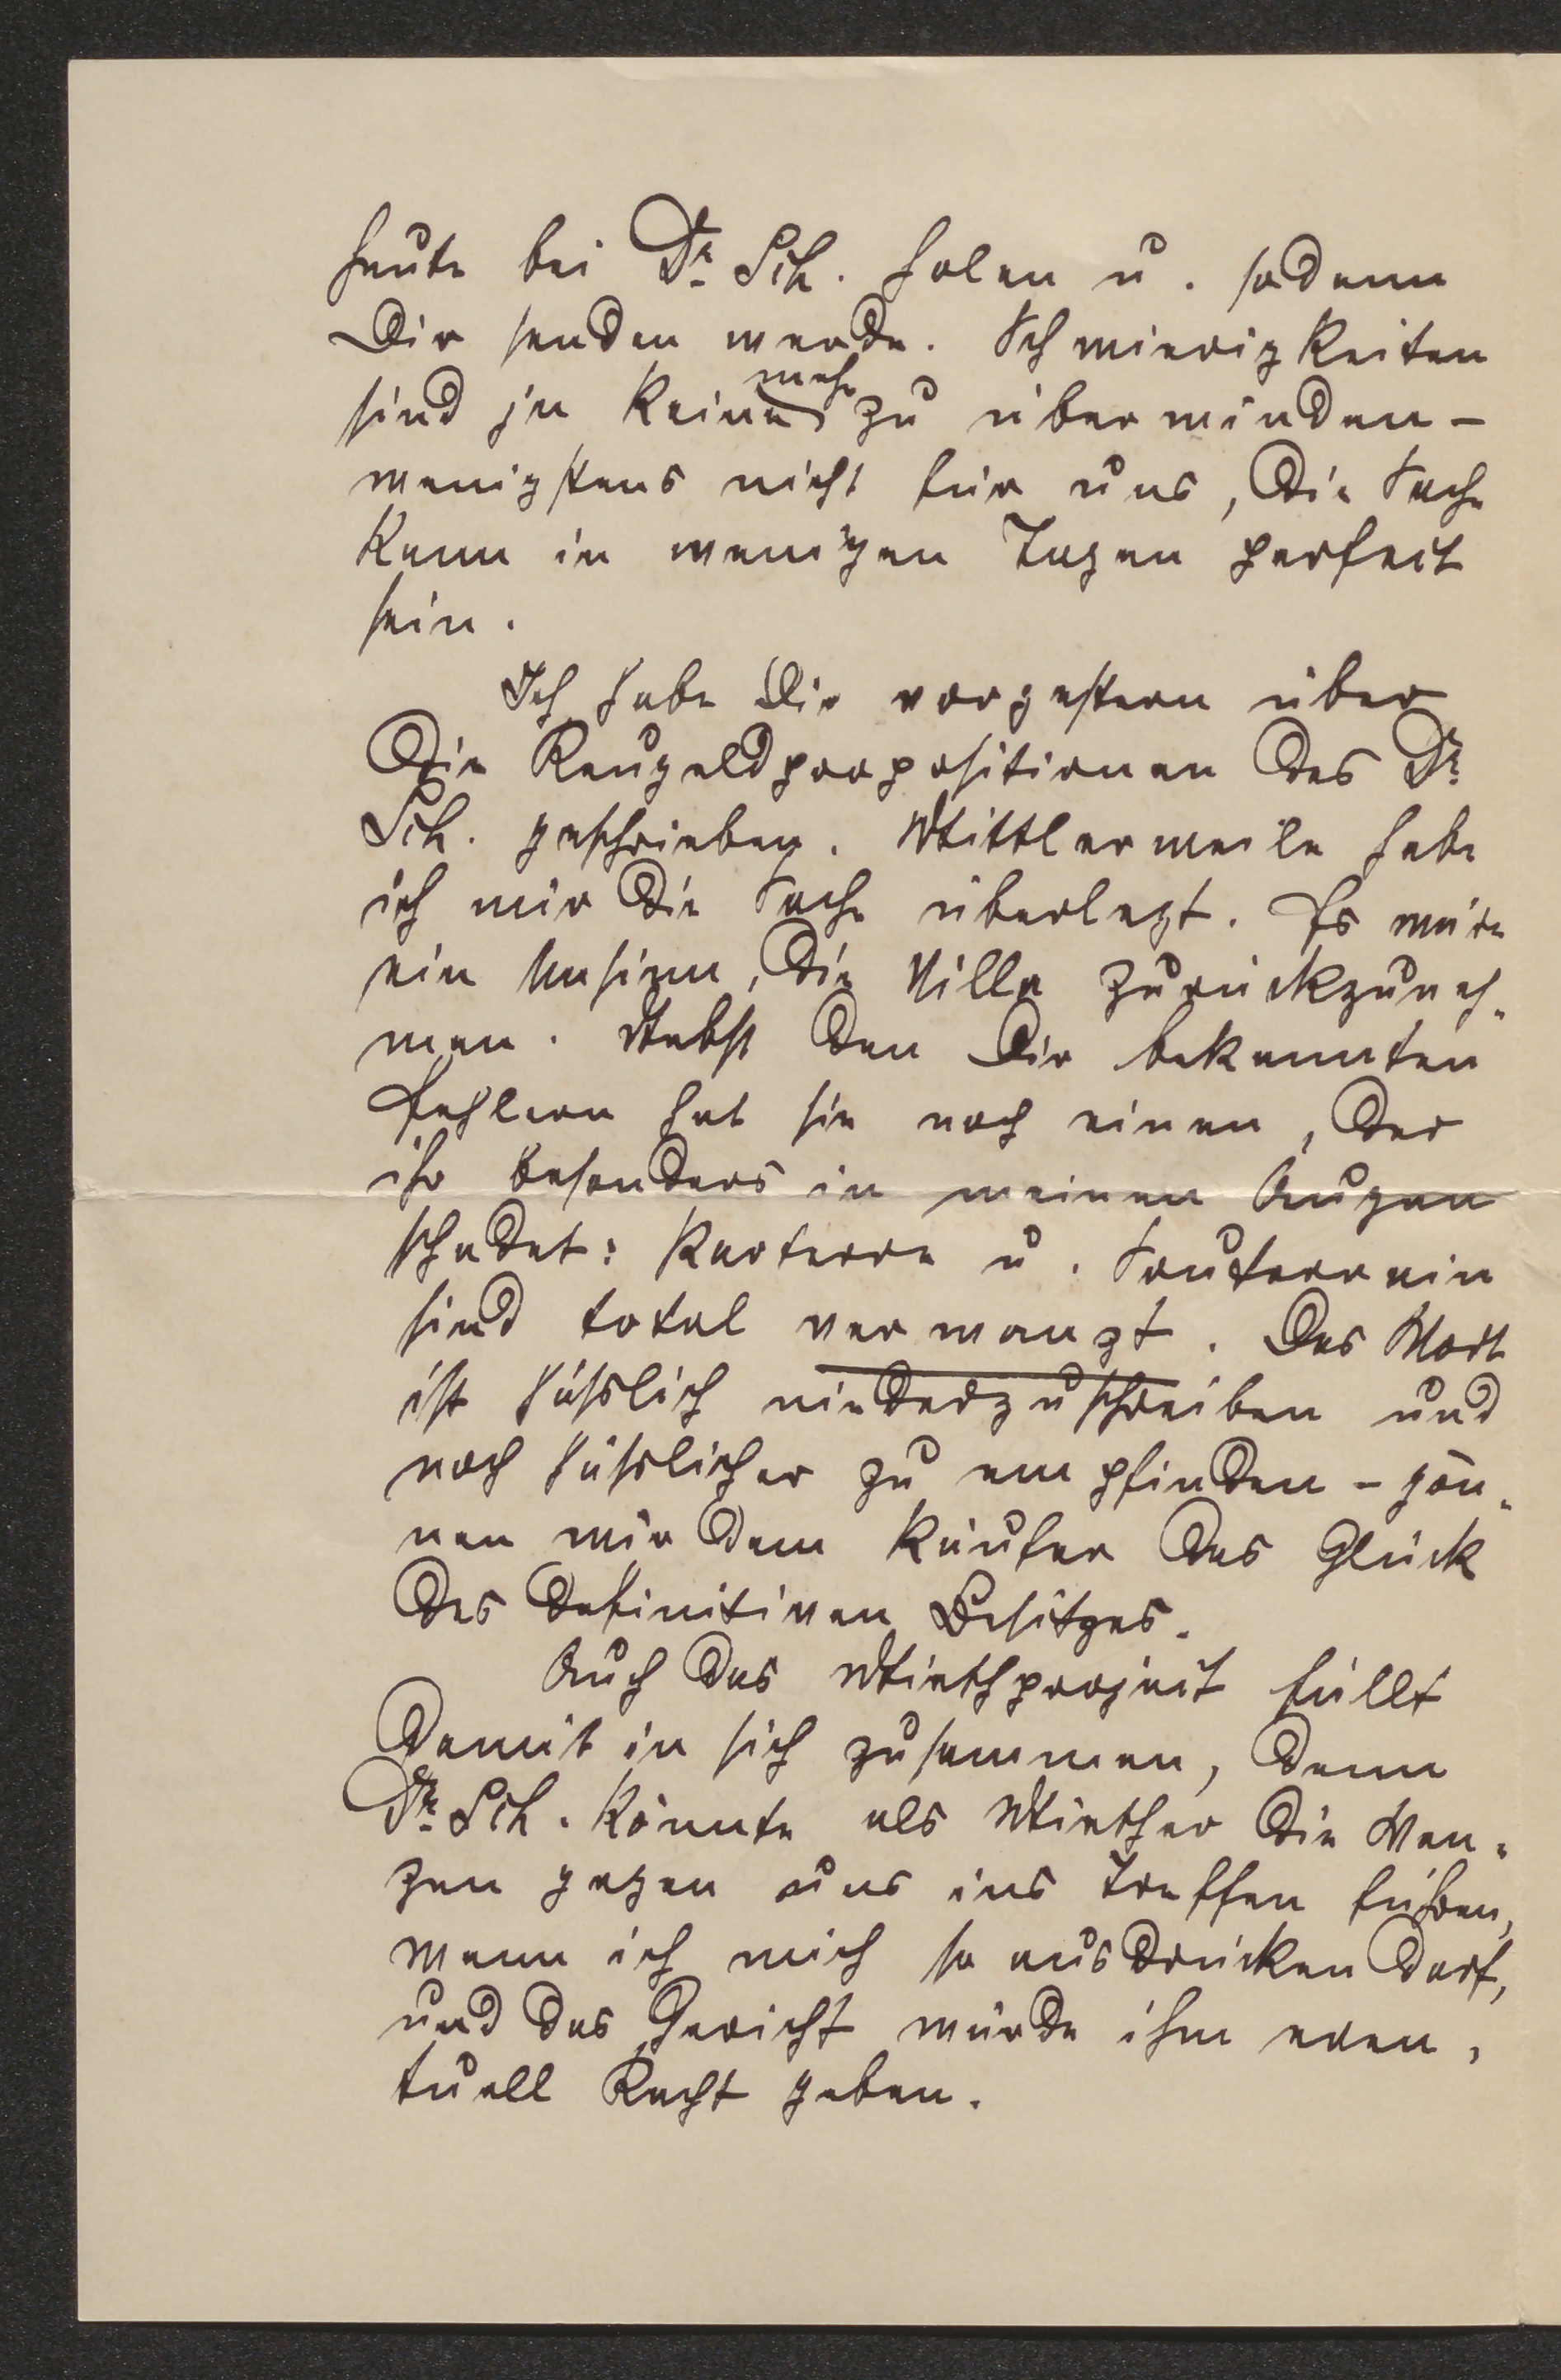 heute bei Dr. Sch. holen u. sodann
Dir senden werde. Schwierigkeiten
sind ja keine mehr zu überwinden –
wenigstens nicht für uns, die Sache
kann in wenigen Tagen perfect
sein.
Ich habe Dir vorgestern über
die Reugeldpropositionen des Dr.
Sch. geschrieben. Mittlerweile habe
ich mir die Sache überlegt. Es wäre
ein Unsinn, die Villa zurückzuneh-
men. Nebst den Dir bekannten
Fehlern hat sie noch einen, der
ihr besonders in meinen Augen
schadet: Parterre u. Souterrain
sind total verwanzt. Das Wort
ist hässlich niederzuschreiben und
noch hässlicher zu empfinden – gön-
nen wir dem Käufer das Glück
des definitiven Besitzes.
Auch das Miethproject fällt
damit in sich zusammen, denn
Dr. Sch. könnte als Miether die Wan-
zen gegen uns ins Treffen führen,
wenn ich mich so ausdrücken darf,
und das Gericht würde ihm even-
tuell Recht geben.